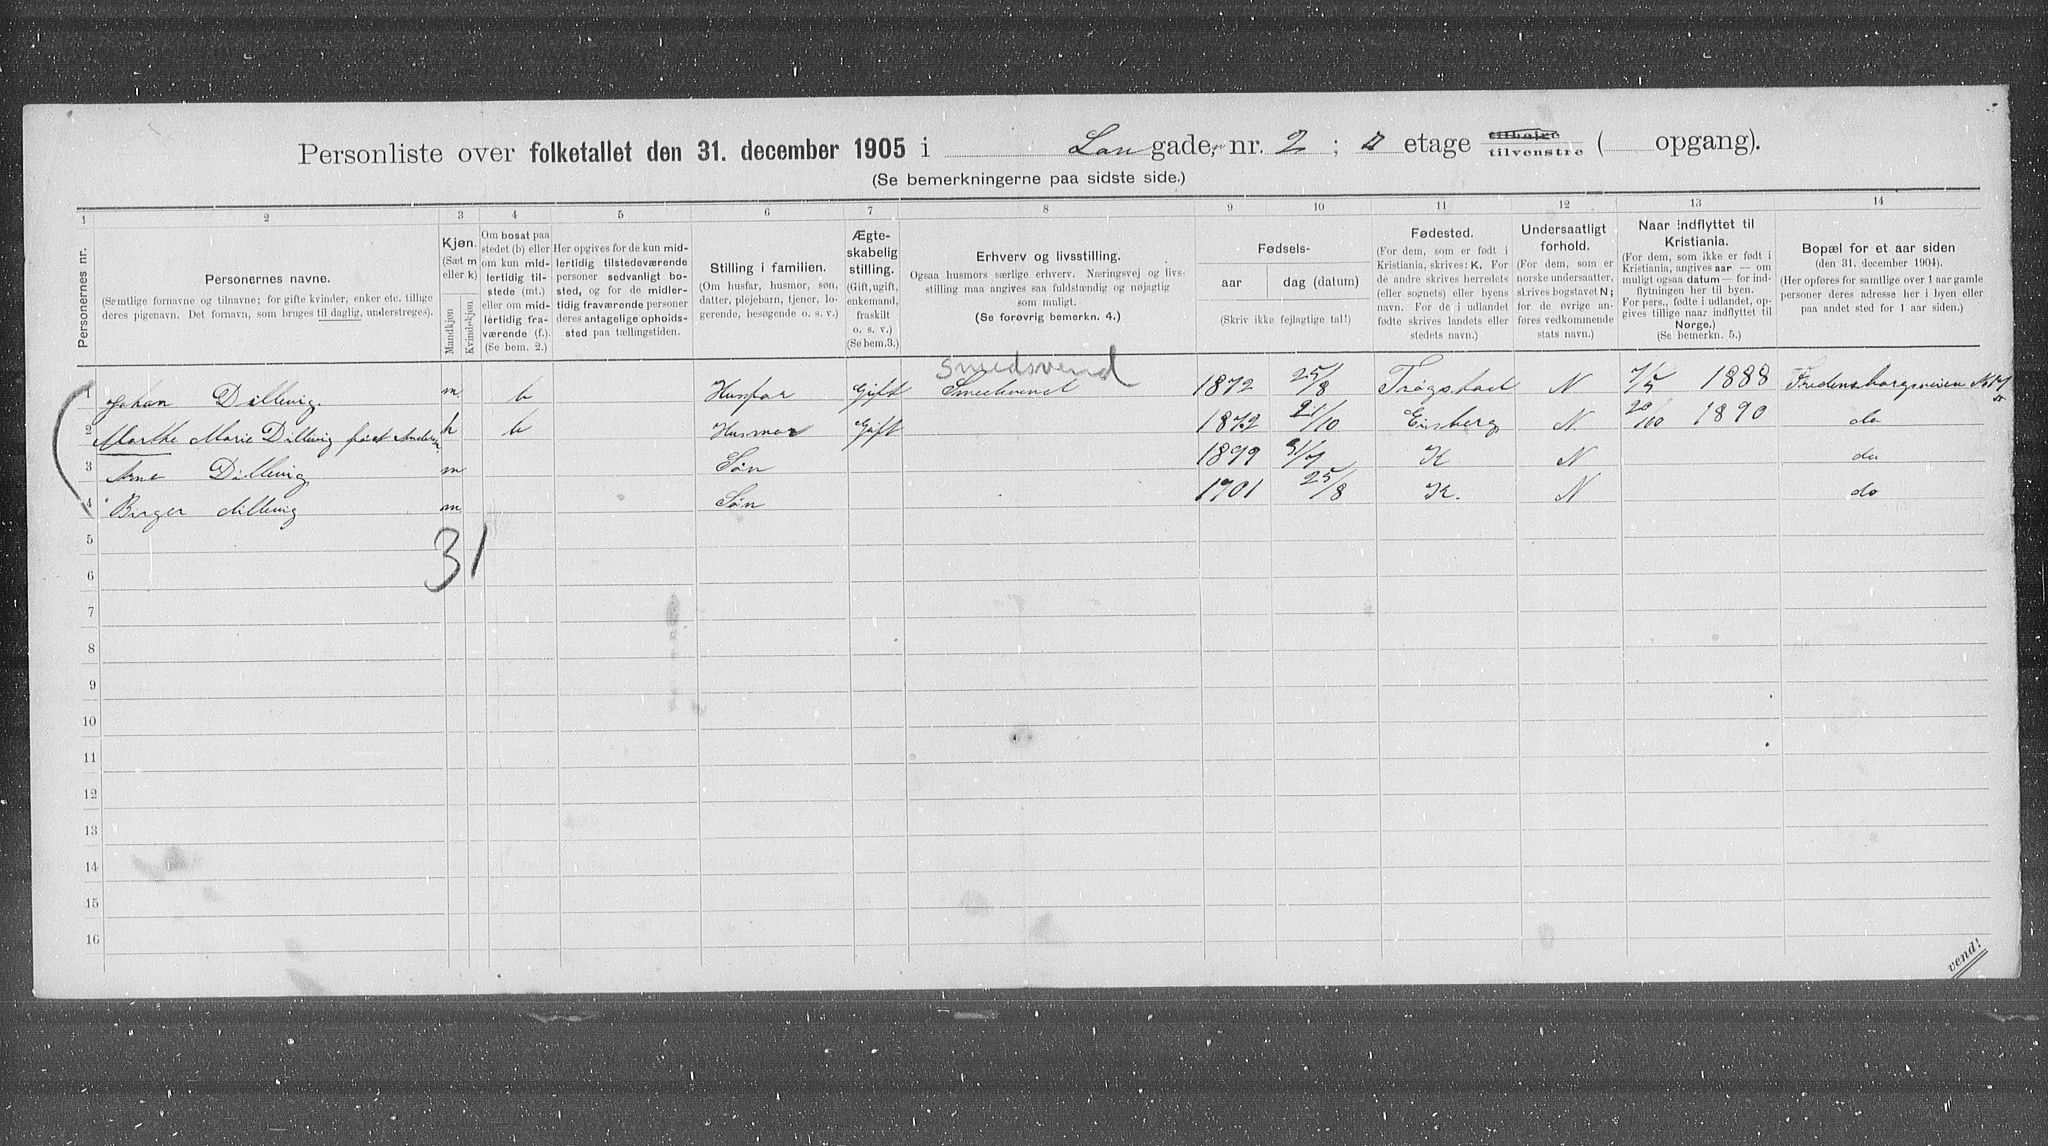 Personliste over folketallet den 31. december 1905 i Lan gade, nr. 2 ; etage tilhøire tilvenstre ( opgang).
(Se bemerkningerne paa sidste side.)
1 2 3 4 5 6 7 8 9 10 11 12 13 14
Personernes nr.
Personernes navne.
(Samtlige fornavne og tilnavne; for gifte kvinder, enker etc. tillige
deres pigenavn. Det fornavn, som bruges til daglig, understreges).
Kjøn.
(Sæt m
eller k)
Mandkjøn
Kvindekjøn
Om bosat paa
stedet (b) eller
om kun mid-
lertidig til-
stede (mt.)
eller om mid-
lertidig fra-
værende (f.).
(Se bem. 2.)
Her opgives for de kun mid-
lertidig tilstedeværende
personer sedvanlig bo-
sted, og for de midler-
tidig fraværende personer
deres antagelige opholds-
sted paa tællingstiden.
Stilling i familien.
(Om husfar, husmor, søn,
datter, plejebarn, tjener, lo-
gerende, besøgende o. s. v.)
Ægte-
skabelig
stilling.
(Gift, ugift,
enkemand,
fraskilt
o. s. v.)
(Se bem.3.)
Erhverv og livsstilling.
Ogsaa husmors særlige erhverv. Næringsvej og livs-
stilling maa angives saa fuldstændig og nøjagtig
som muligt.
(Se forøvrig bemerkn. 4.)
Fødsels-
aar dag (datum)
(Skriv ikke fejlagtige tal!)
Fødested.
(For dem, som er født i
Kristiania, skrives: K. For
de andre skrives herredets
(eller sognets) eller byens
navn. For de i udlandet
fødte skrives landets eller
stedets navn.)
Undersaatligt
forhold.
(For dem, som er
norske undersaatter,
skrives bogstavet N;
for de øvrige an-
føres vedkommende
stats navn.)
Naar indflyttet til
Kristiania.
(For dem, som ikke er født i
Kristiania, angives aar — om
muligt ogsaa datum — for ind-
flytningen her til byen.
For pers., fødte i udlandet, op-
gives tillige naar indflyttet til
Norge.)
(Se bemerkn. 5.)
Bopæl for et aar siden
(den 31. december 1904).
(Her opføres for samtlige over 1 aar gamle
personer deres adresse her i byen eller
paa andet sted for 1 aar siden.)
smedsvend
1 Johan Dillevig. m b Husfar Gift Smedsvend 1872 25/8 Trøgstad N 7/5 1888 Fredensborgveien No 17
2 Marthe Marie Dillevig født k b Husmor Gift 1872 21/10 Eidsberg N 1890 do
3 Arne Dillevig m Søn 1899 31/7 K N do
4 Birger dillevig m Søn 1901 25/8 K. N do
31
5
6
7
8
9
10
11
12
13
14
15
16
vend!